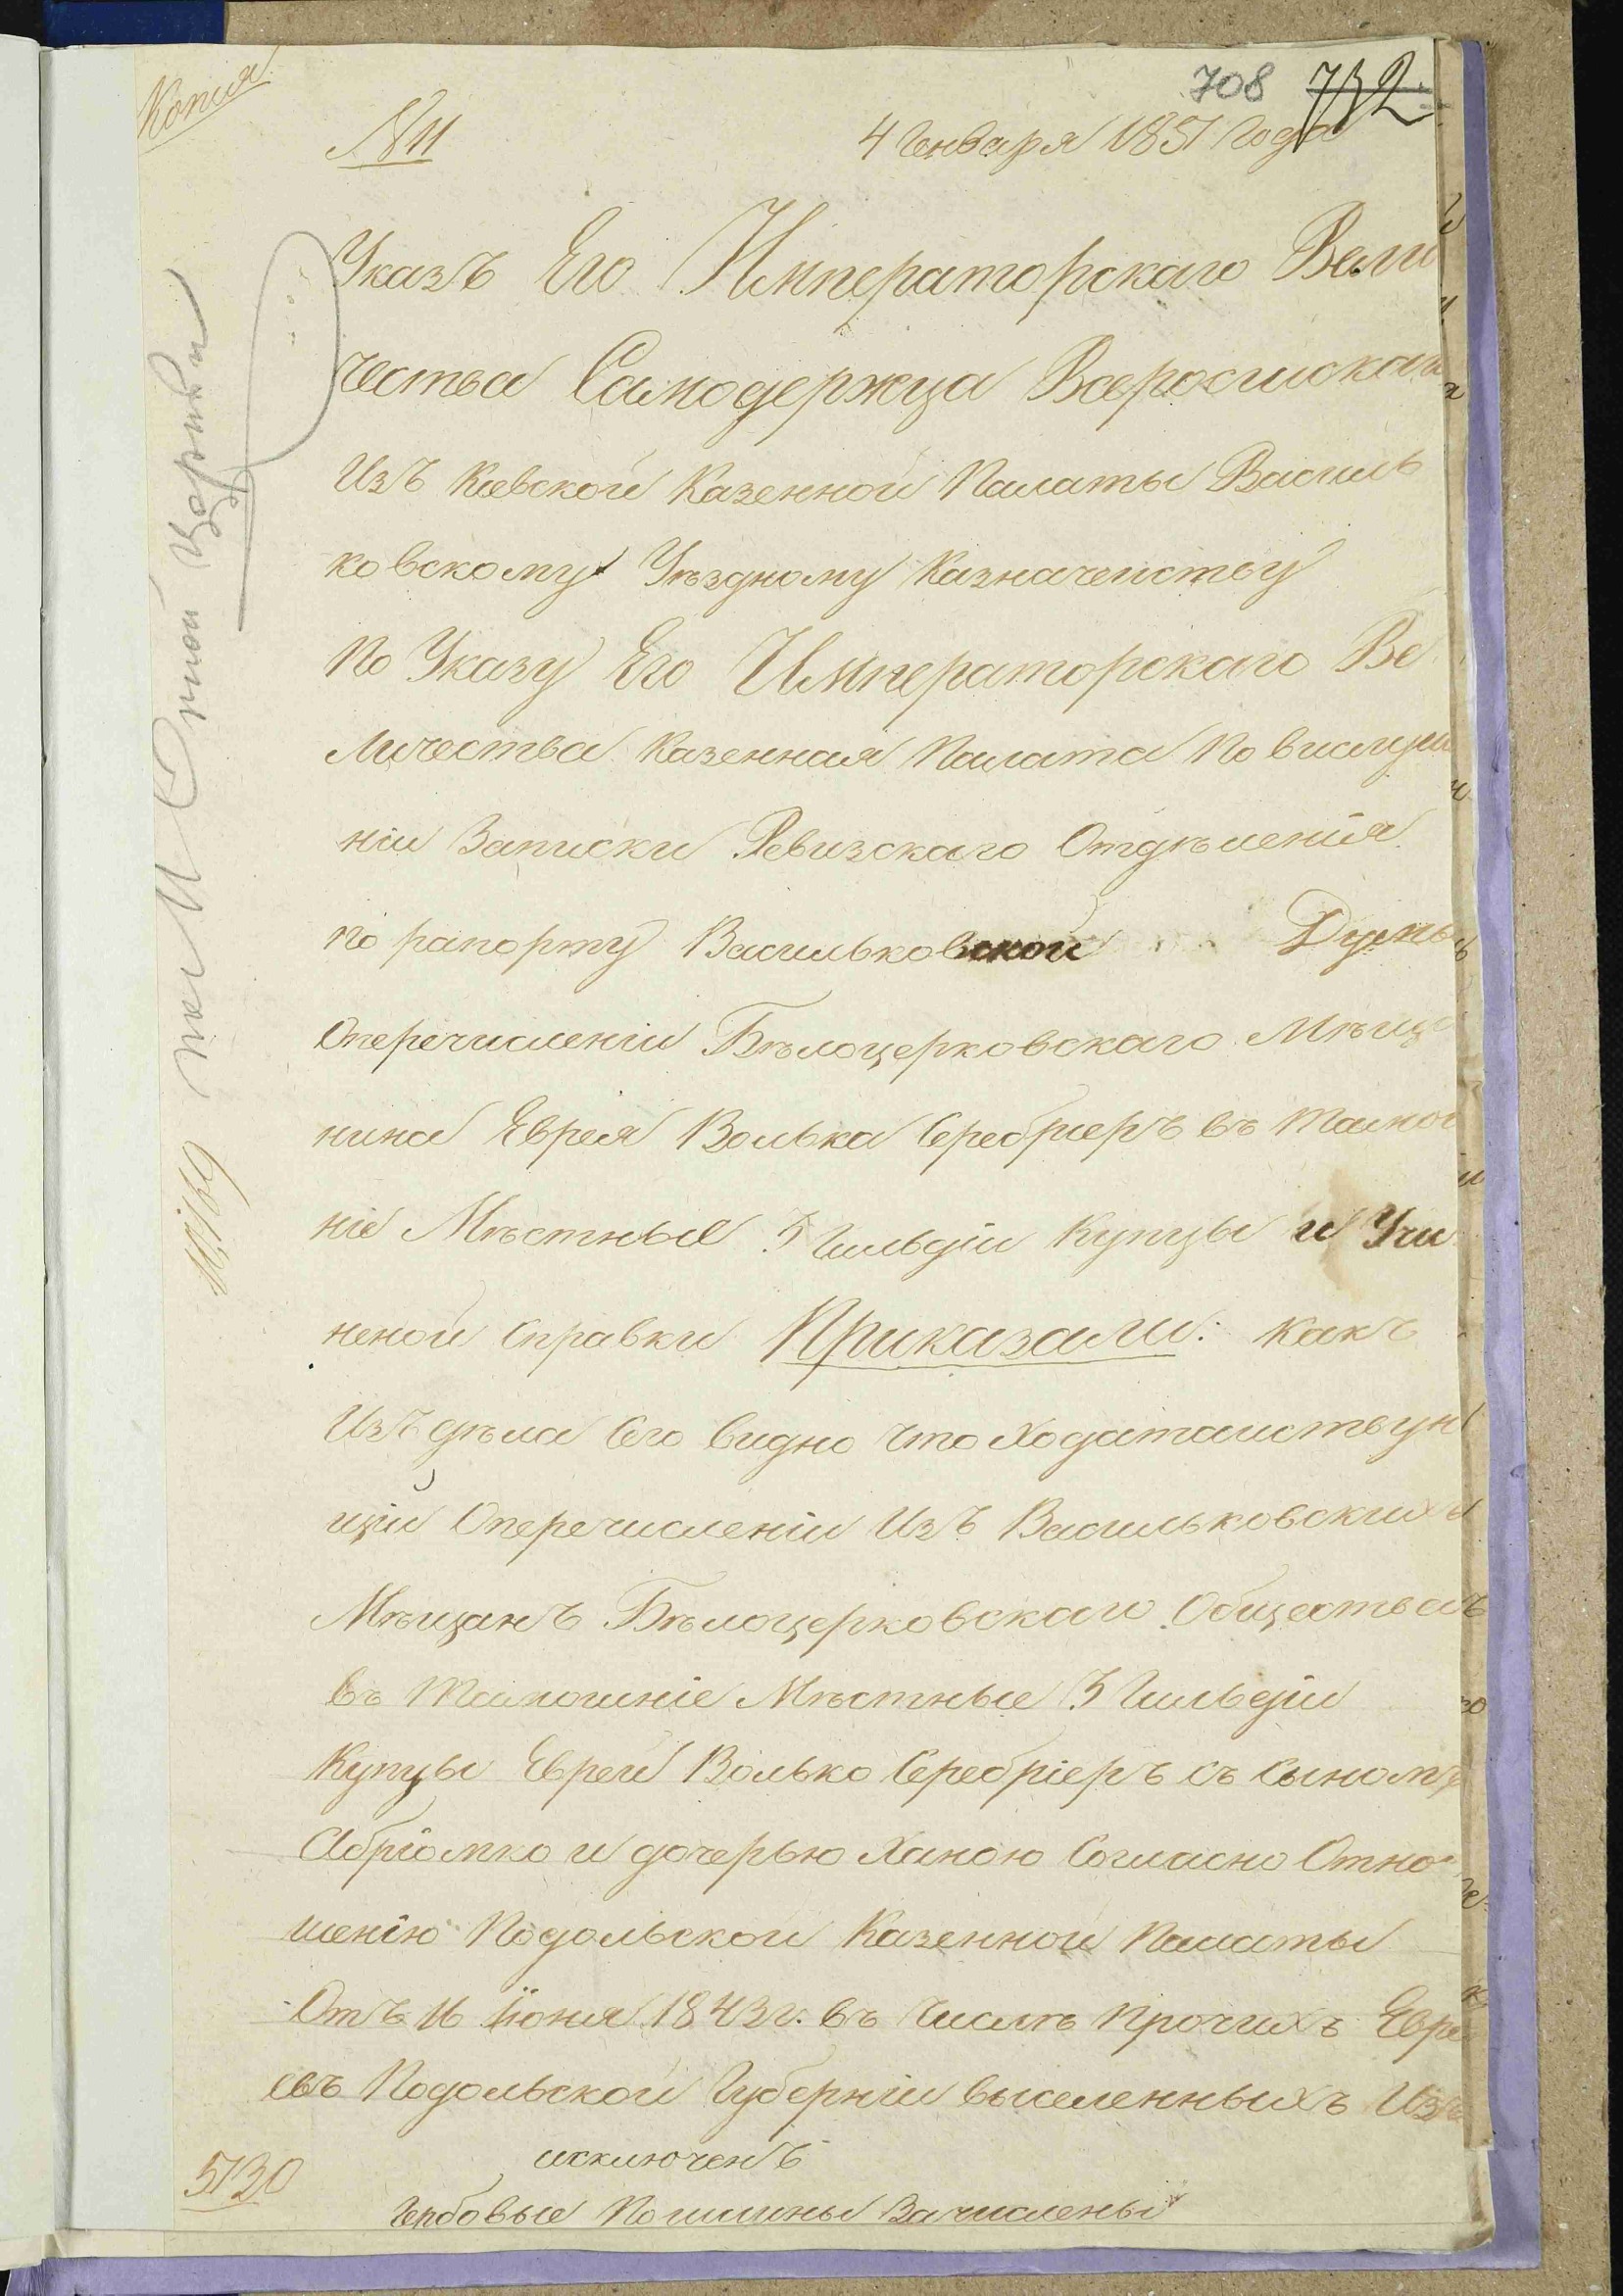 Копія
708 732
№ 11
4 Генваря 1851 Года
Указъ Его Императорскаго Вели
чества Самодержца Всеросискаго
Изъ Кіевской Казенной Палаты Василь
ковскому Уѣздному Казначеиству
По Указу Его Императорскаго Ве
личества Казенная Палата По вислуша
ніи Записки Ревизскаго Отдѣленія
по рапорту Васильковской Думы
Оперечисленіи Бѣлоцерковскаго Мѣща
нина Еврея Волька Серебріеръ въ тамош
ніе Мѣстные 3 Гильдіи Купцы и Учи
неной Справки Приказали: Какъ
Изъ дѣла Сего видно что Ходатаиствую
щіи Оперечисленіи Изъ Васильковскихъ
Мѣщанъ Бѣлоцерковскаго Общества
въ Тамошніе Мѣстные 3 Гильдіи
Купцы Еврей Волько Серебріеръ съ Сыномъ
Абріомко и дочерью Ханою Согласно Отно
шенію Подольской Казенной Палаты
Отъ 16 Іюня 1843 г. въ Числѣ Прочихъ Евре
евъ Подольской Губерніи выселенныхъ Изъ
исключенъ
5730
Гербовые Пошлины Зачислены